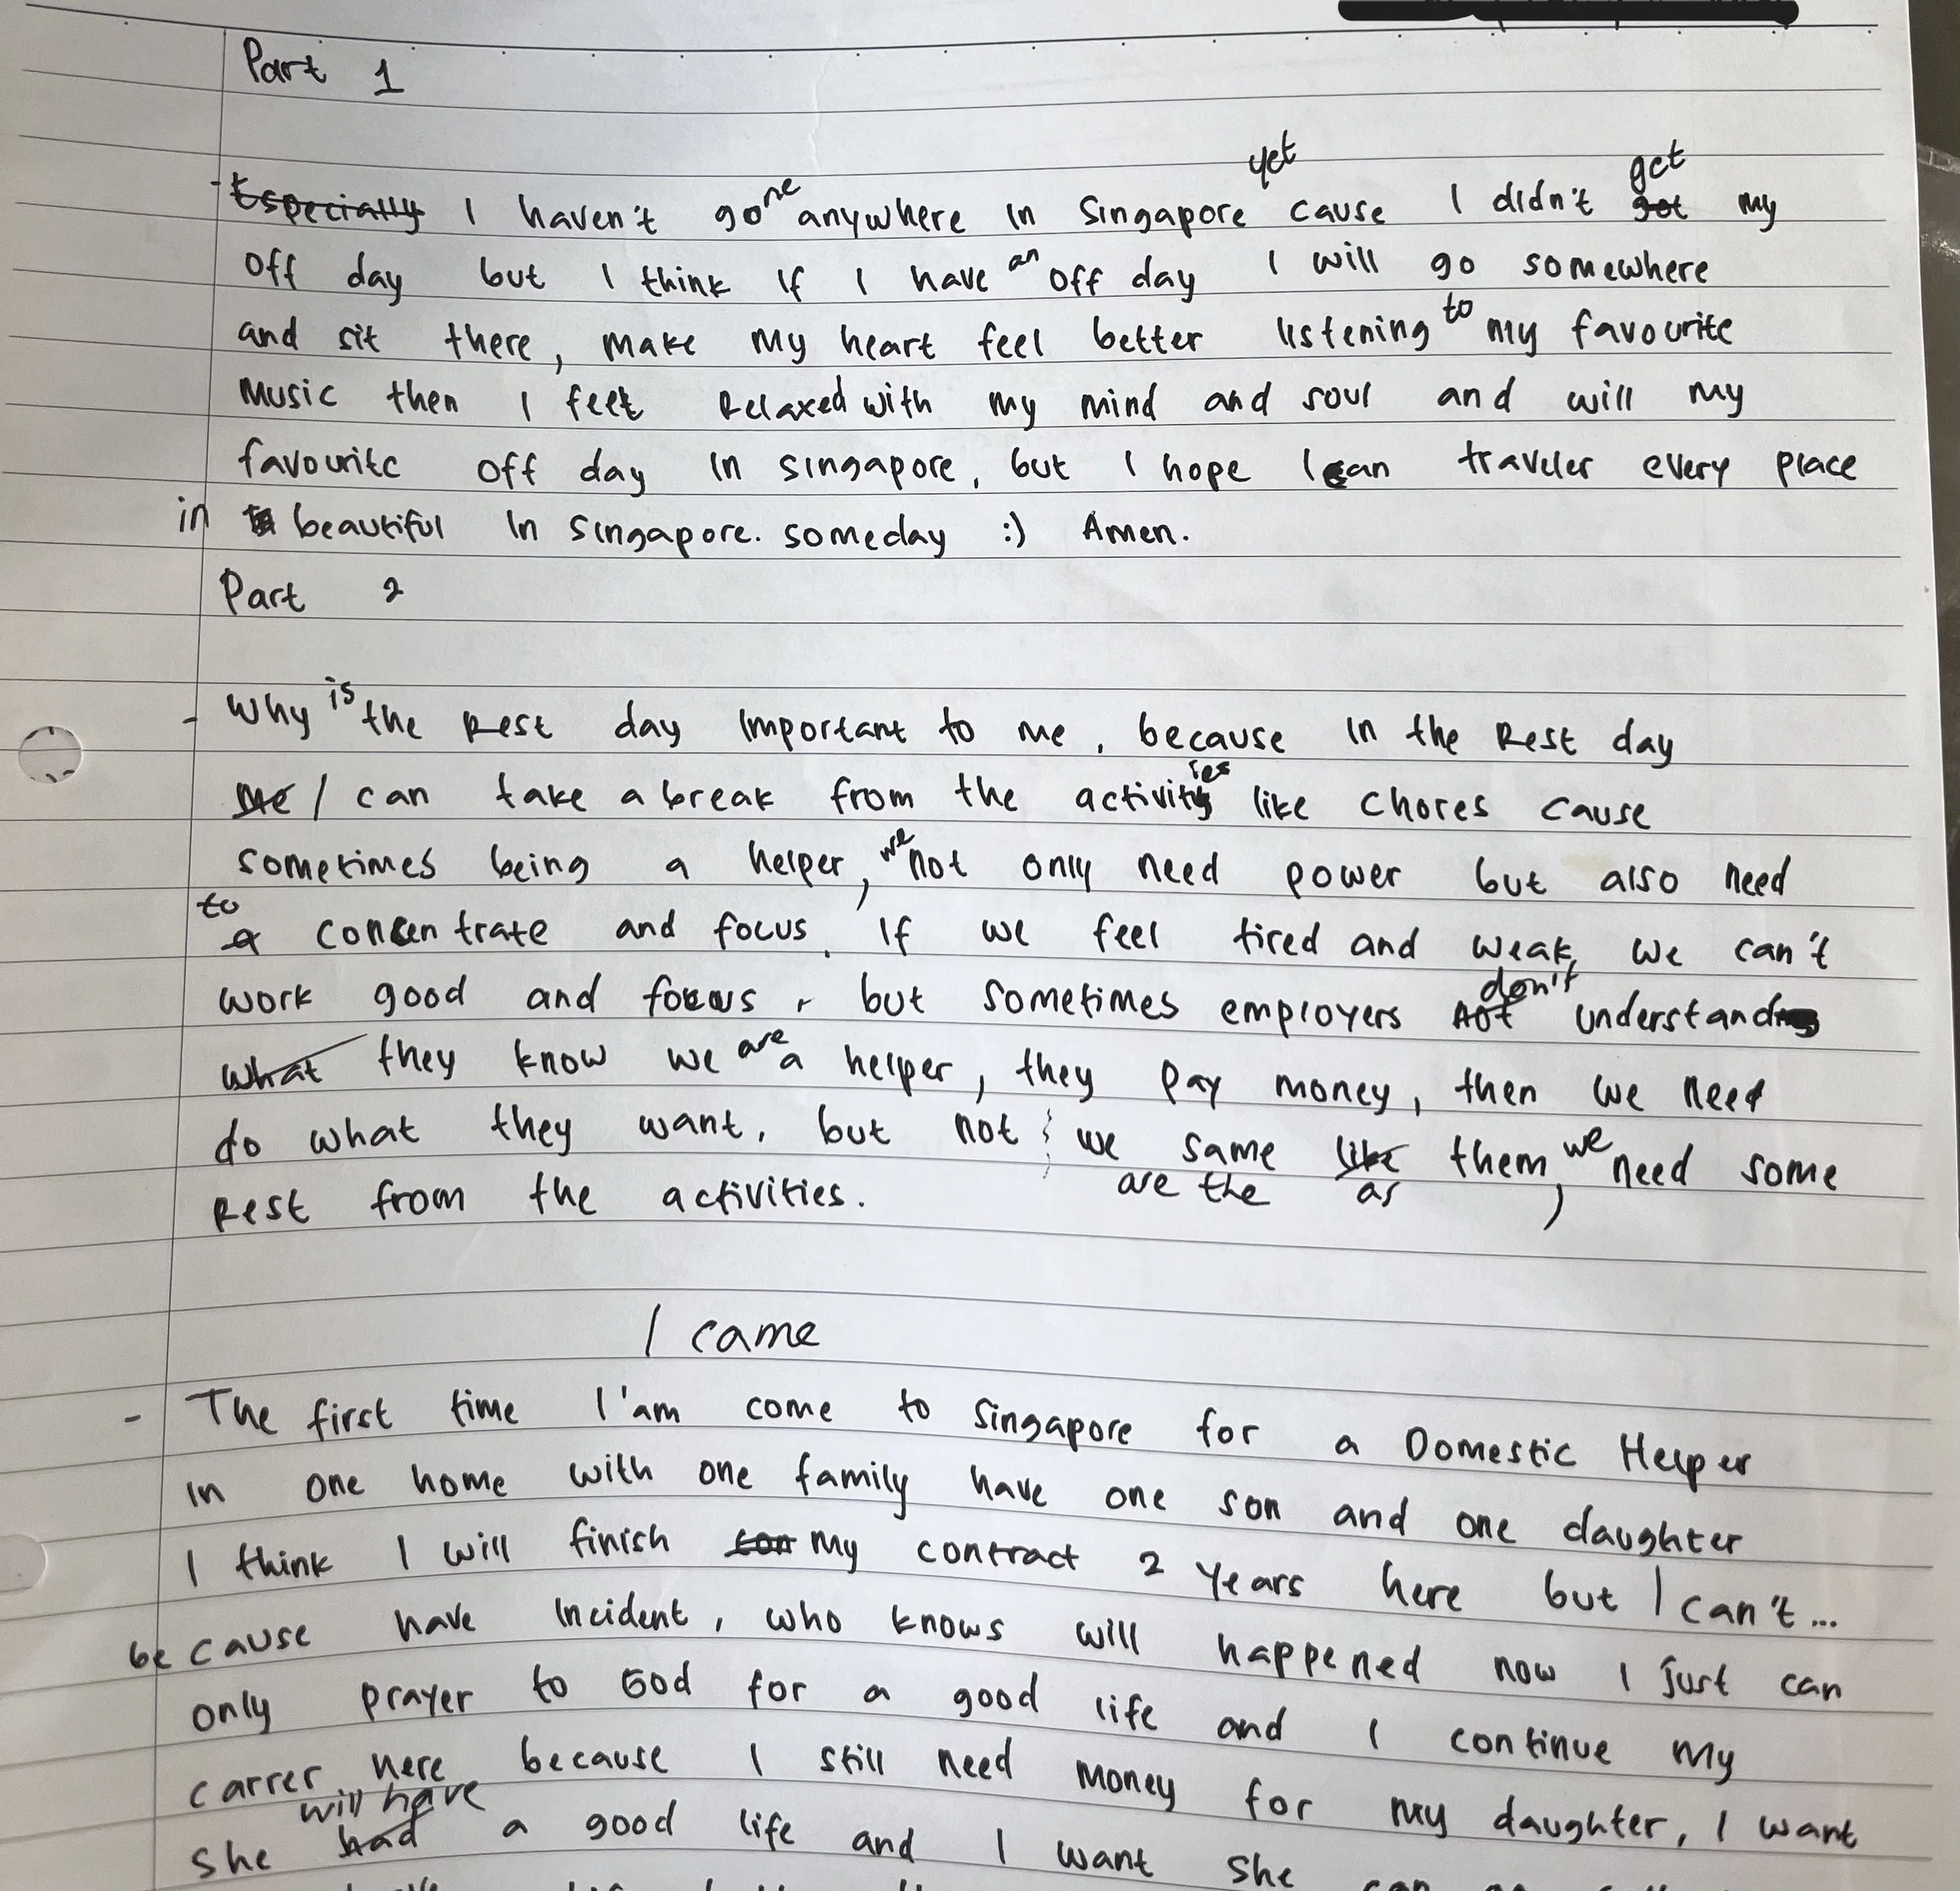 Part 1
- Especially I haven't gone anywhere in Singapore yet cause I didn't got get my
off day but I think if I have an off day I will go somewhere
and sit there, make my heart feel better listening to my favourite
music then I feel Relaxed with my mind and soul and will my
favourite off day in singapore, but I hope I can traveler every place
in beautiful in singapore. someday :) Amen.
Part 2
- Why is the Rest day important to me, because in the Rest day
me I can take a break from the activities like chores cause
sometimes being a helper, we not only need power but also need
to a concentrate and focus. If we feel tired and weak, we can't
work good and focus, but sometimes employers not don't understand
what they know we are a helper, they pay money, then we need
do what they want, but not we are the same like as them, we need some
Rest from the activities.
I came
- The first time I'am come to Singapore for a Domestic Helper
in one home with one family have one son and one daughter
I think I will finish con my contract 2 years here but I can't...
because have incident, who knows will happened now I just can
only prayer to God for a good life and I continue my
carrer here because I still need money for my daughter, I want
she had will have a good life and I want she can